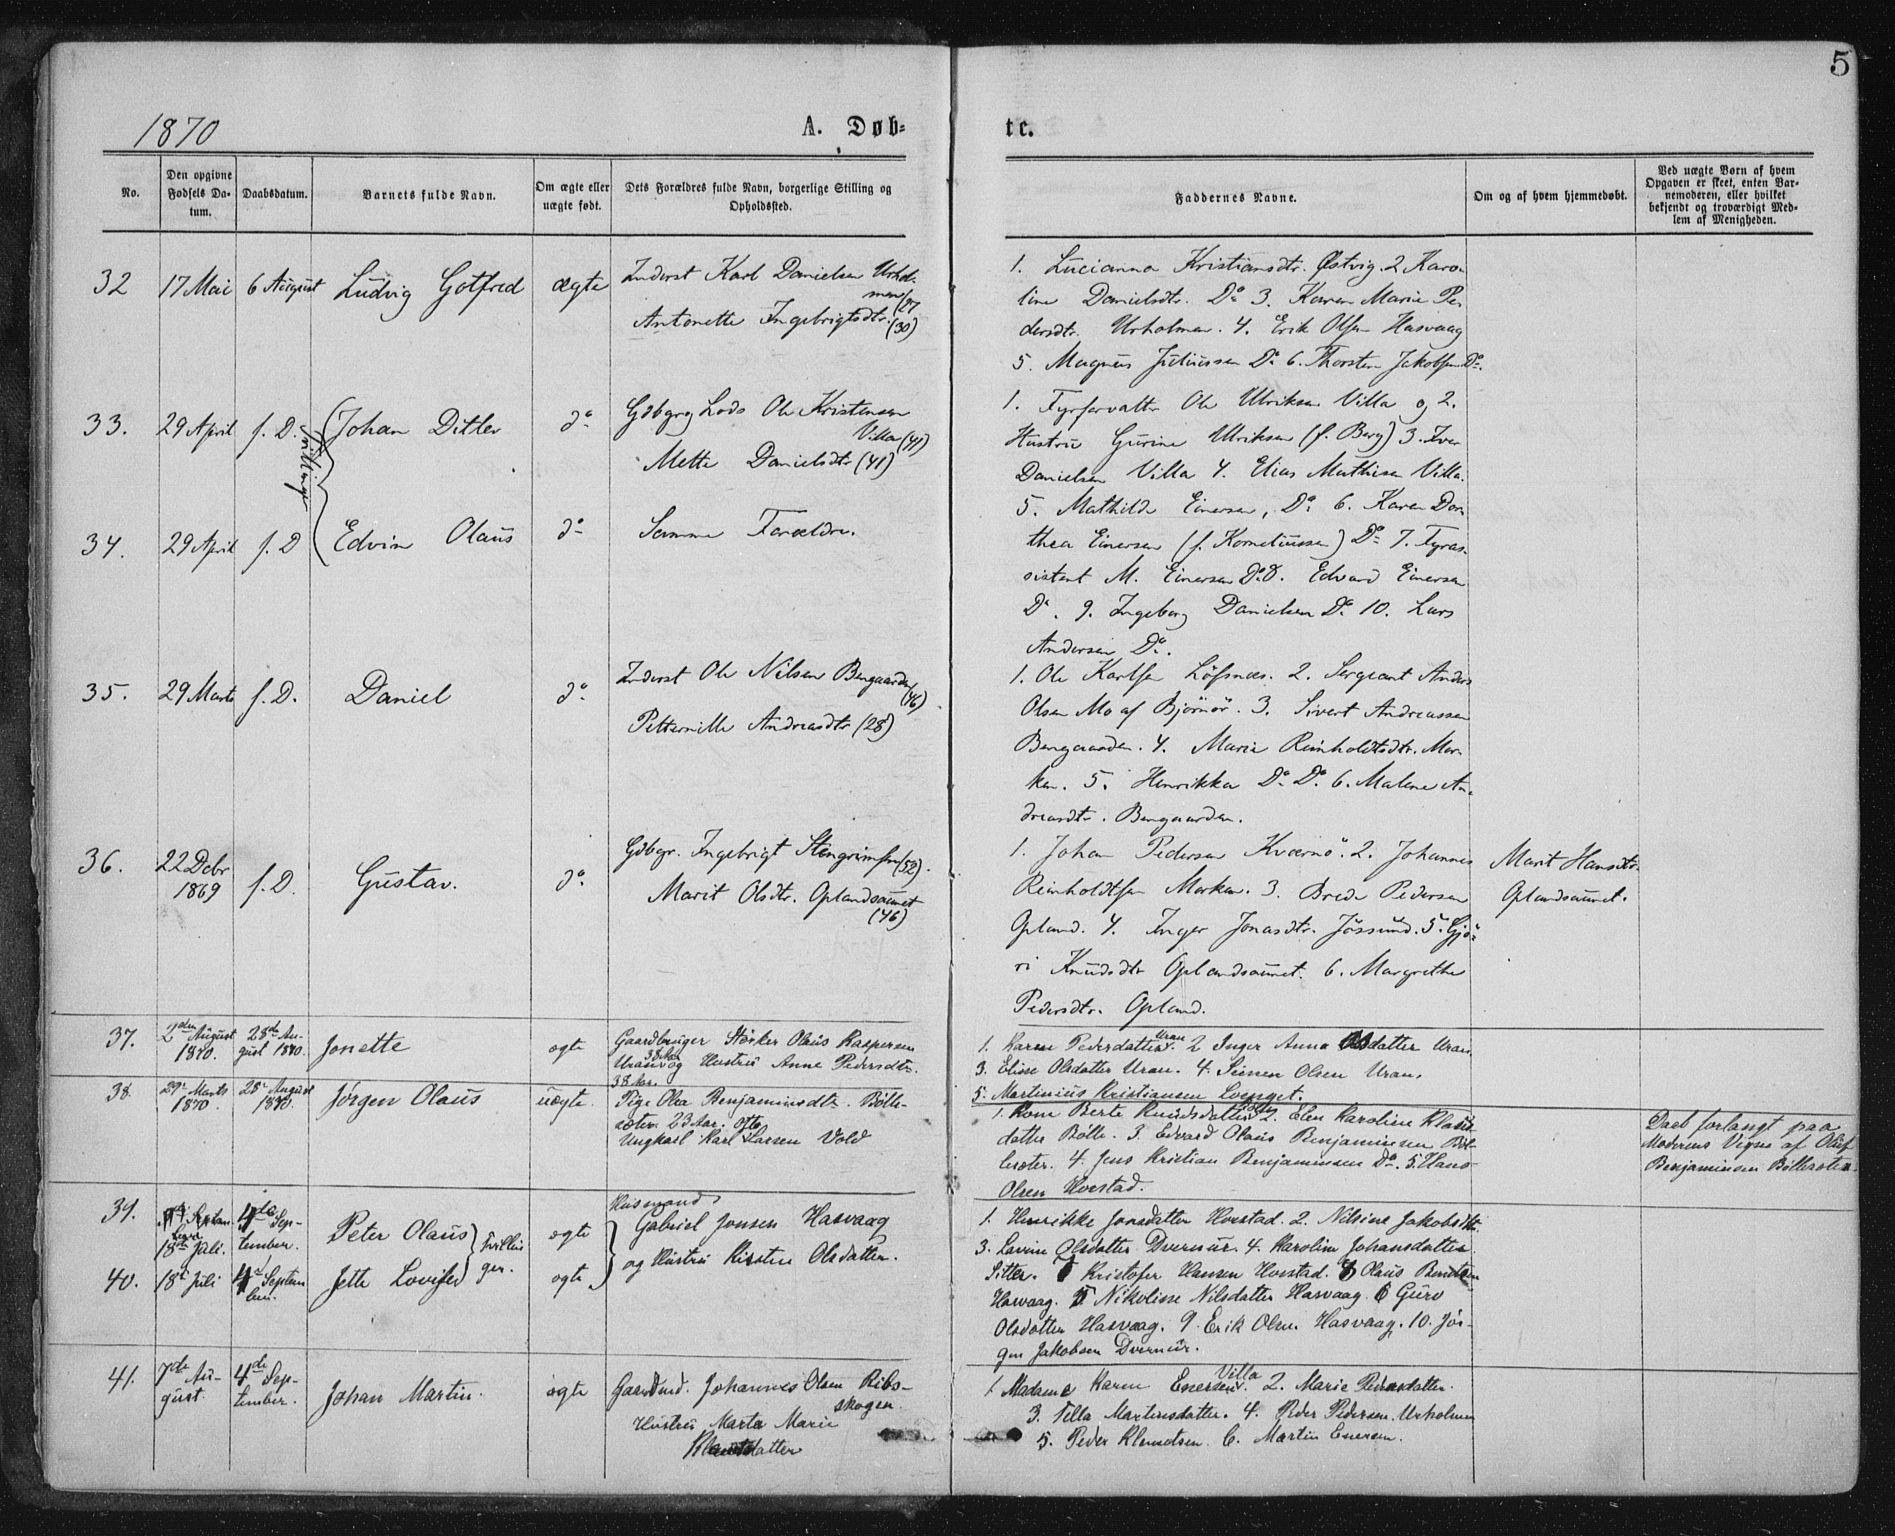 5
1870
A. Døb-
te.
No.
Den opgivne Fødsels Da-tum.
Daabsdatum.
Barnets fulde Navn.
Om ægte eller uægte født.
Dets Forældres fulde Navn, borgerlige Stilling og Opholdssted.
Faddernes Navne.
Om og af hvem hjemmedøbt.
Ved uægte Børn af hvem Opgaven er skeet, enten Bar-nemoderen, eller hvilket bekjendt og troværdigt Med-lem af Menigheden.
32 17 Mai 6 August Ludvig Gotfred ægte
Inderst Karl Danielsen Urhol-
men (27
Antonette Ingebrigtsdtr. (30)
1. Lucianna Kristiansdtr. Østvig. 2 Karo-
line Danielsdtr. Do 3. Karen Marie Pe-
dersdtr. Urholmen. 4. Erik Olsen Hasvaag
5. Magnus Juliussen Do 6. Thorsten Jakobsen Do.
33. 29 April f. D. Johan Ditlev do
Tvillinger
Gdbgrg Lods Ole Kristensen
Villa (41)
Mette Danielsdtr (41)
1. Fyrforvalter Ole Ulriksen Villa og 2.
Hustru Gurine Ulriksen (f. Berg) 3. Iver
Danielsen Villa 4. Elias Mathisen Villa.
5. Mathilde Einersen, Do 6. Karen Doro-
thea Einersen (f. Korneliussen) Do 7. Fyras-
sistent M. Einersen Do 8. Edvard Einersen
Do. 9. Ingeborg Danielsen Do 10. Lars
Andersen Do.
34. 29 April f. D Edvin Olaus do
Samme Forældre.
35. 29 Marts f. D. Daniel do
Inderst Ole Nilsen Bengaarden
(46)
Petternille Andreasdtr (28)
1. Ole Karlsen Løfsnæs. 2. Sergeant Anders
Olsen Mo af Bjørnør. 3. Sivert Andreassen
Bengaarden. 4. Marie Reinholdtsdtr. Mar-
ken. 5. Henrikka Do Do 6. Malene An-
dreasdtr. Bengaarden.
36. 22 Debr f. D. Gustav. do
1869
Gdbgr. Ingebrigt Stengrimsen (52).
Marit Olsdtr. Oplandsaunet
(46)
1. Johan Pedersen Kværnø. 2. Johannes
Reinholdtsen Marken. 3. Brede Pedersen
Opland. 4. Inger Jonasdtr. Jøssund. 5. Gjø-
ri Knudsdtr Oplandsaunet. 6. Margrethe
Pedersdtr. Opland.
Marit Hansdtr.
Oplandsaunet.
37. 2den August 1870. 28de August 1870. Jonette ægte
Gaardbruger Størker Olaus Kaspersen
Uran og Hustru Anne Pedersdtr.
38 Aar.
1. Karen Pedersdatter Uran. 2 Inger Anna Olsdatter Uran
3. Elise Olsdatter Uran. 4. Simen Olsen Uran.
5. Martinius Kristiansen
38. 29de Marts 1870. 28de August 1870. Jørgen Olaus uægte.
Pige Olea Benjaminsdtr. Bølle-
sæter. 23 Aar. og
Ungkarl Karl Larsen Vold
1. Kone Berte Knudsdatter 2. Elen Karoline Klaus-
datter Bølle. 3. Edvard Olaus Benjaminsen Bøl-
lesæter. 4. Jens Kristian Benjaminsen Do. 5. Hans
Olsen Hvestad.
Daab forlangt paa
Moderens Vegne af
Benjaminsen Böllesæter
39. 18de Juli. 4de Sep-tember. Peter Olaus ægte
Tvillin-
ger.
Husmand
Gabriel Jensen Hasvaag
og Hustru Kirsten Olsdatter.
1. Henrikke Jonsdatter Hvestad. 2. Nilsine Jakobsdtr.
3. Lavine Olsdatter Dvernur. 4. Karoline Johansdatter
Sitter. Kristofer Hansen Hvestad. Olaus
Hasvaag. Nikoline Nilsdatter Hasvaag. Guro
Olsdatter Hasvaag. 9. Erik Olsen Hasvaag. 10. Jør-
gen Jakobsen Dvernur.
40. 18de Juli 4de September. Jette Lovise ægte
41. 7de Au-gust. 4de Sep-tember. Johan Martin. ægte
Gaardmd. Johannes Olsen Ribs-
skogen.
Hustru Marta Marie
datter
1. Madame Karen Enersen Villa. 2. Marie Pedersdatter.
3. Martinsdatter. 4. Peder Pedersen. Urholmen
5. Peder Klemetsen. 6. Martin Enersen.